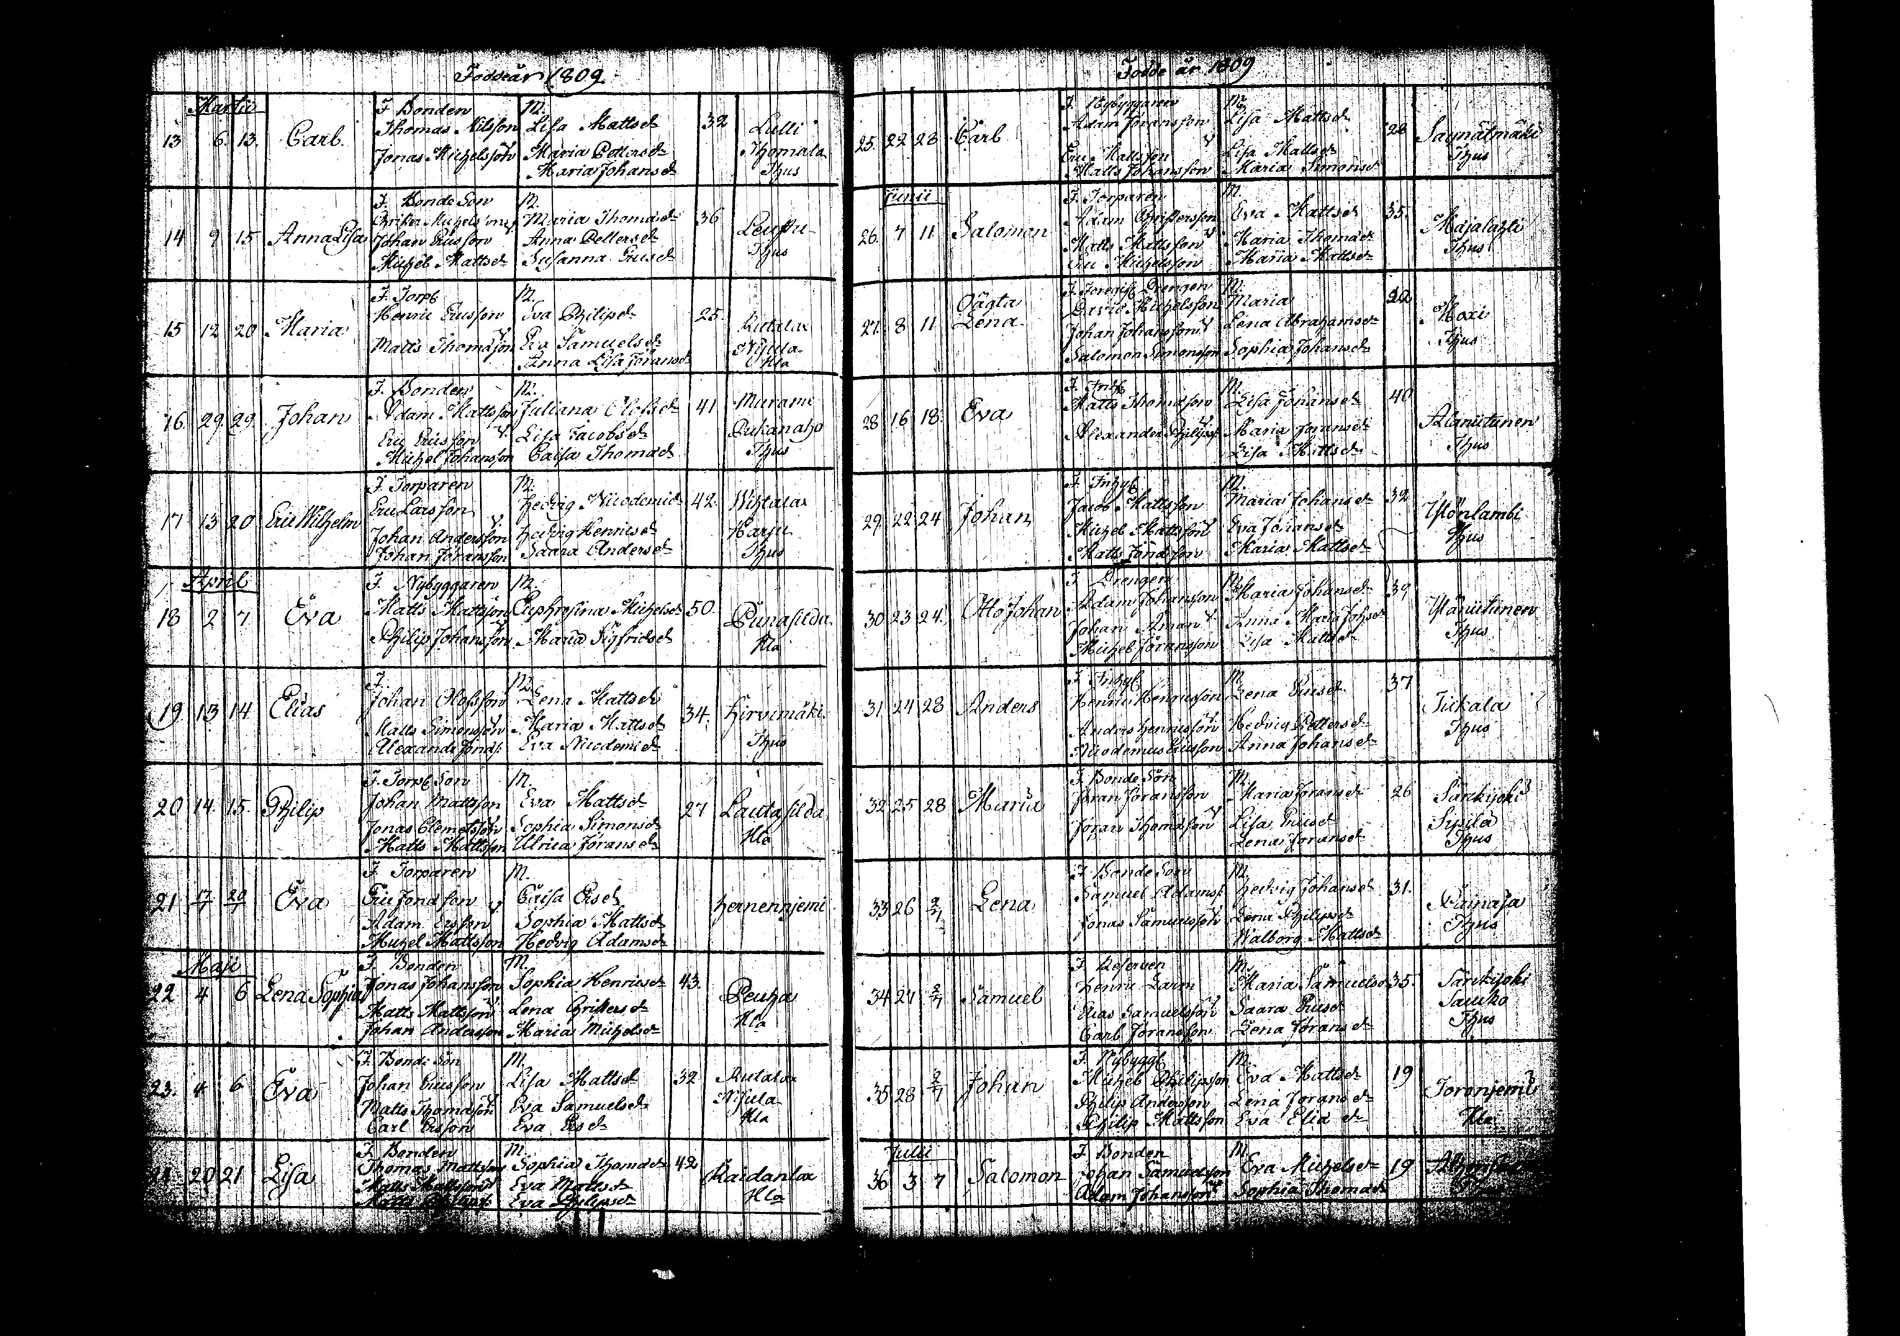 Födde år 1809
Martii
13 6. 13. Carl. F. Bonden M. 32 Lulli
Thomas Nilsson Lisa Mattsd. Thomala
Jonas Michelsson Maria Pettersd. Thus
Maria Johansd.
14 9 15 Anna Lisa F. Bonde Son M. 36
Christer Michelsson Maria Thomasd.
Johan Ericsson Anna Pettersd. Thus
Michel Mattsd. Susanna Ericsd.
15 12 20 Maria F. Torp. M. 25.
Henric Ericsson Eva Philipsd. Rutalax
Matts Thomasson Eva Samuelsd. Nisula
Anna Lisa Joransd. Hla
16. 29. 29. Johan F. Bonden M. 41 Murame
Adam Mattsson Juliana Olofsd. Pukanaho
Eric Ericsson Lisa Jacobsd. Thus
Michel Johansson Caisa Thomasd.
17 13 20 Eric Wilhelm F. Torparen M. 42.
Eric Larsson Hedvig Nicodemid. Harju
Johan Andersson Hedvig Henricsd. Thus
Johan Joransson Saara Andersd.
April
18 2 7 Eva F. Nybyggaren M. 50.
Matts Mattsson Euphrosina Michelsd. Punasilda
Philip Johansson Maria Sigfridsd. Hla
19 13 14 Elias F. M. 34.
Johan Olofsson Lena Mattsd. Hirvimäki
Matts Simonsson Maria Mattsd. Thus
Alexander Eva Nicodemid.
20 14. 15. Philip F. Torp. Son M. 27
Johan Mattsson Eva Mattsd. Lautasilda
Jonas Clemetsson Sophia Simonsd. Hla
Matts Mattsson Ulrica Joransd.
21 17 20 Eva F. Torparen M.
Eric Caisa Ersd. Hernenniemi
Adam Ersson Sophia Mattsd.
Michel Mattsson Hedvig Adamsd.
Maji
22 4 6 Lena Sophia F. Bonden M. 43.
Jonas Johansson Sophia Henricsd. Peuha
Matts Mattsson Lena Christersd. Hla
Johan Andersson Maria Michelsd.
23. 4 6 Eva F. Bonde Son M. 32 Rutalax
Johan Ericsson Lisa Mattsd. Nisula
Matts Thomasson Eva Samuelsd. Hla
Carl Ersson Eva Ersd.
20 21 Lisa F. Bonden M. 42
Thomas Mattsson Sophia Thomasd. Raidanlax
Matts Mattsson Eva Mattsd. Hla
Eva Philipsd.
Födde år 1809
25. 22 28 Carl F. Nybyggaren M. 28
Adam Joransson Lisa Mattsd. Saynätmäki
Eric Mattsson Lisa Mattsd. Thus
Matts Johansson Maria Simonsd.
Junii
26. 7 11 Salomon F. Torparen M. 35.
Adam Christersson Eva Mattsd. Majalahti
Matts Mattsson Maria Thomasd. Thus
Eric Michelsson Maria Mattsd.
27. 8 11 Oägta Lena F. Foregifv. Drengen M.
David Michelsson Maria Moxi
Johan Johansson Lena Abrahamsd. Thus
Salomon Simonsson Sophia Johansd.
28 16 18. Eva F. Inhys. M. 40
Matts Thomasson Lisa Johansd.
Alexander Philipss. Maria Joransd. Thus
Lisa Mattsd.
29. 22 24 Johan F. Inhys. M. 32
Jacob Mattsson Maria Johansd.
Michel Mattsson Eva Johansd. Thus
Matts Maria Mattsd.
30 23 24. Otto Johan F. Drengen M. 39
Adam Johansson Maria Johansd.
Johan Aman Anna Maria Johsd. Thus
Michel Joransson Lisa Mattsd.
31 24 28 Anders F. Inhys. M. 37
Henric Lena Ericsd. Tikkala
Anders Henricsson Hedvig Pettersd. Thus
Nicodemus Ericsson Anna Johansd.
32 25 28 Maria F. Bonde Son M. 26
Joran Joransson Maria Joransd. Särkijoki
Joran Thomasson Lisa Ericsd. Sipilä
Lena Joransd. Thus
33 26 2/7 Lena F. Bonde Son M. 31.
Samuel Adamss. Hedvig Johansd.
Jonas Samuelsson Lena Philipsd. Thus
Walborg Mattsd.
34 27 2/7 Samuel F. Reserven M. 35.
Henric Maria Samuelsd. Särkijoki
Elias Samuelsson Saara Ericsd. Saukko
Carl Joransson Lena Joransd. Thus
35 28 2/7 Johan F. Nybygg. M. 19
Michel Philipsson Eva Mattsd. Toroniemi
Philip Andersson Lena Joransd. Hla
Philip Mattsson Eva Eliad.
Julii
36 3 7 Salomon F. Bonden M. 19
Johan Samuelsson Eva Michelsd.
Adam Johansson Sophia Thomasd.